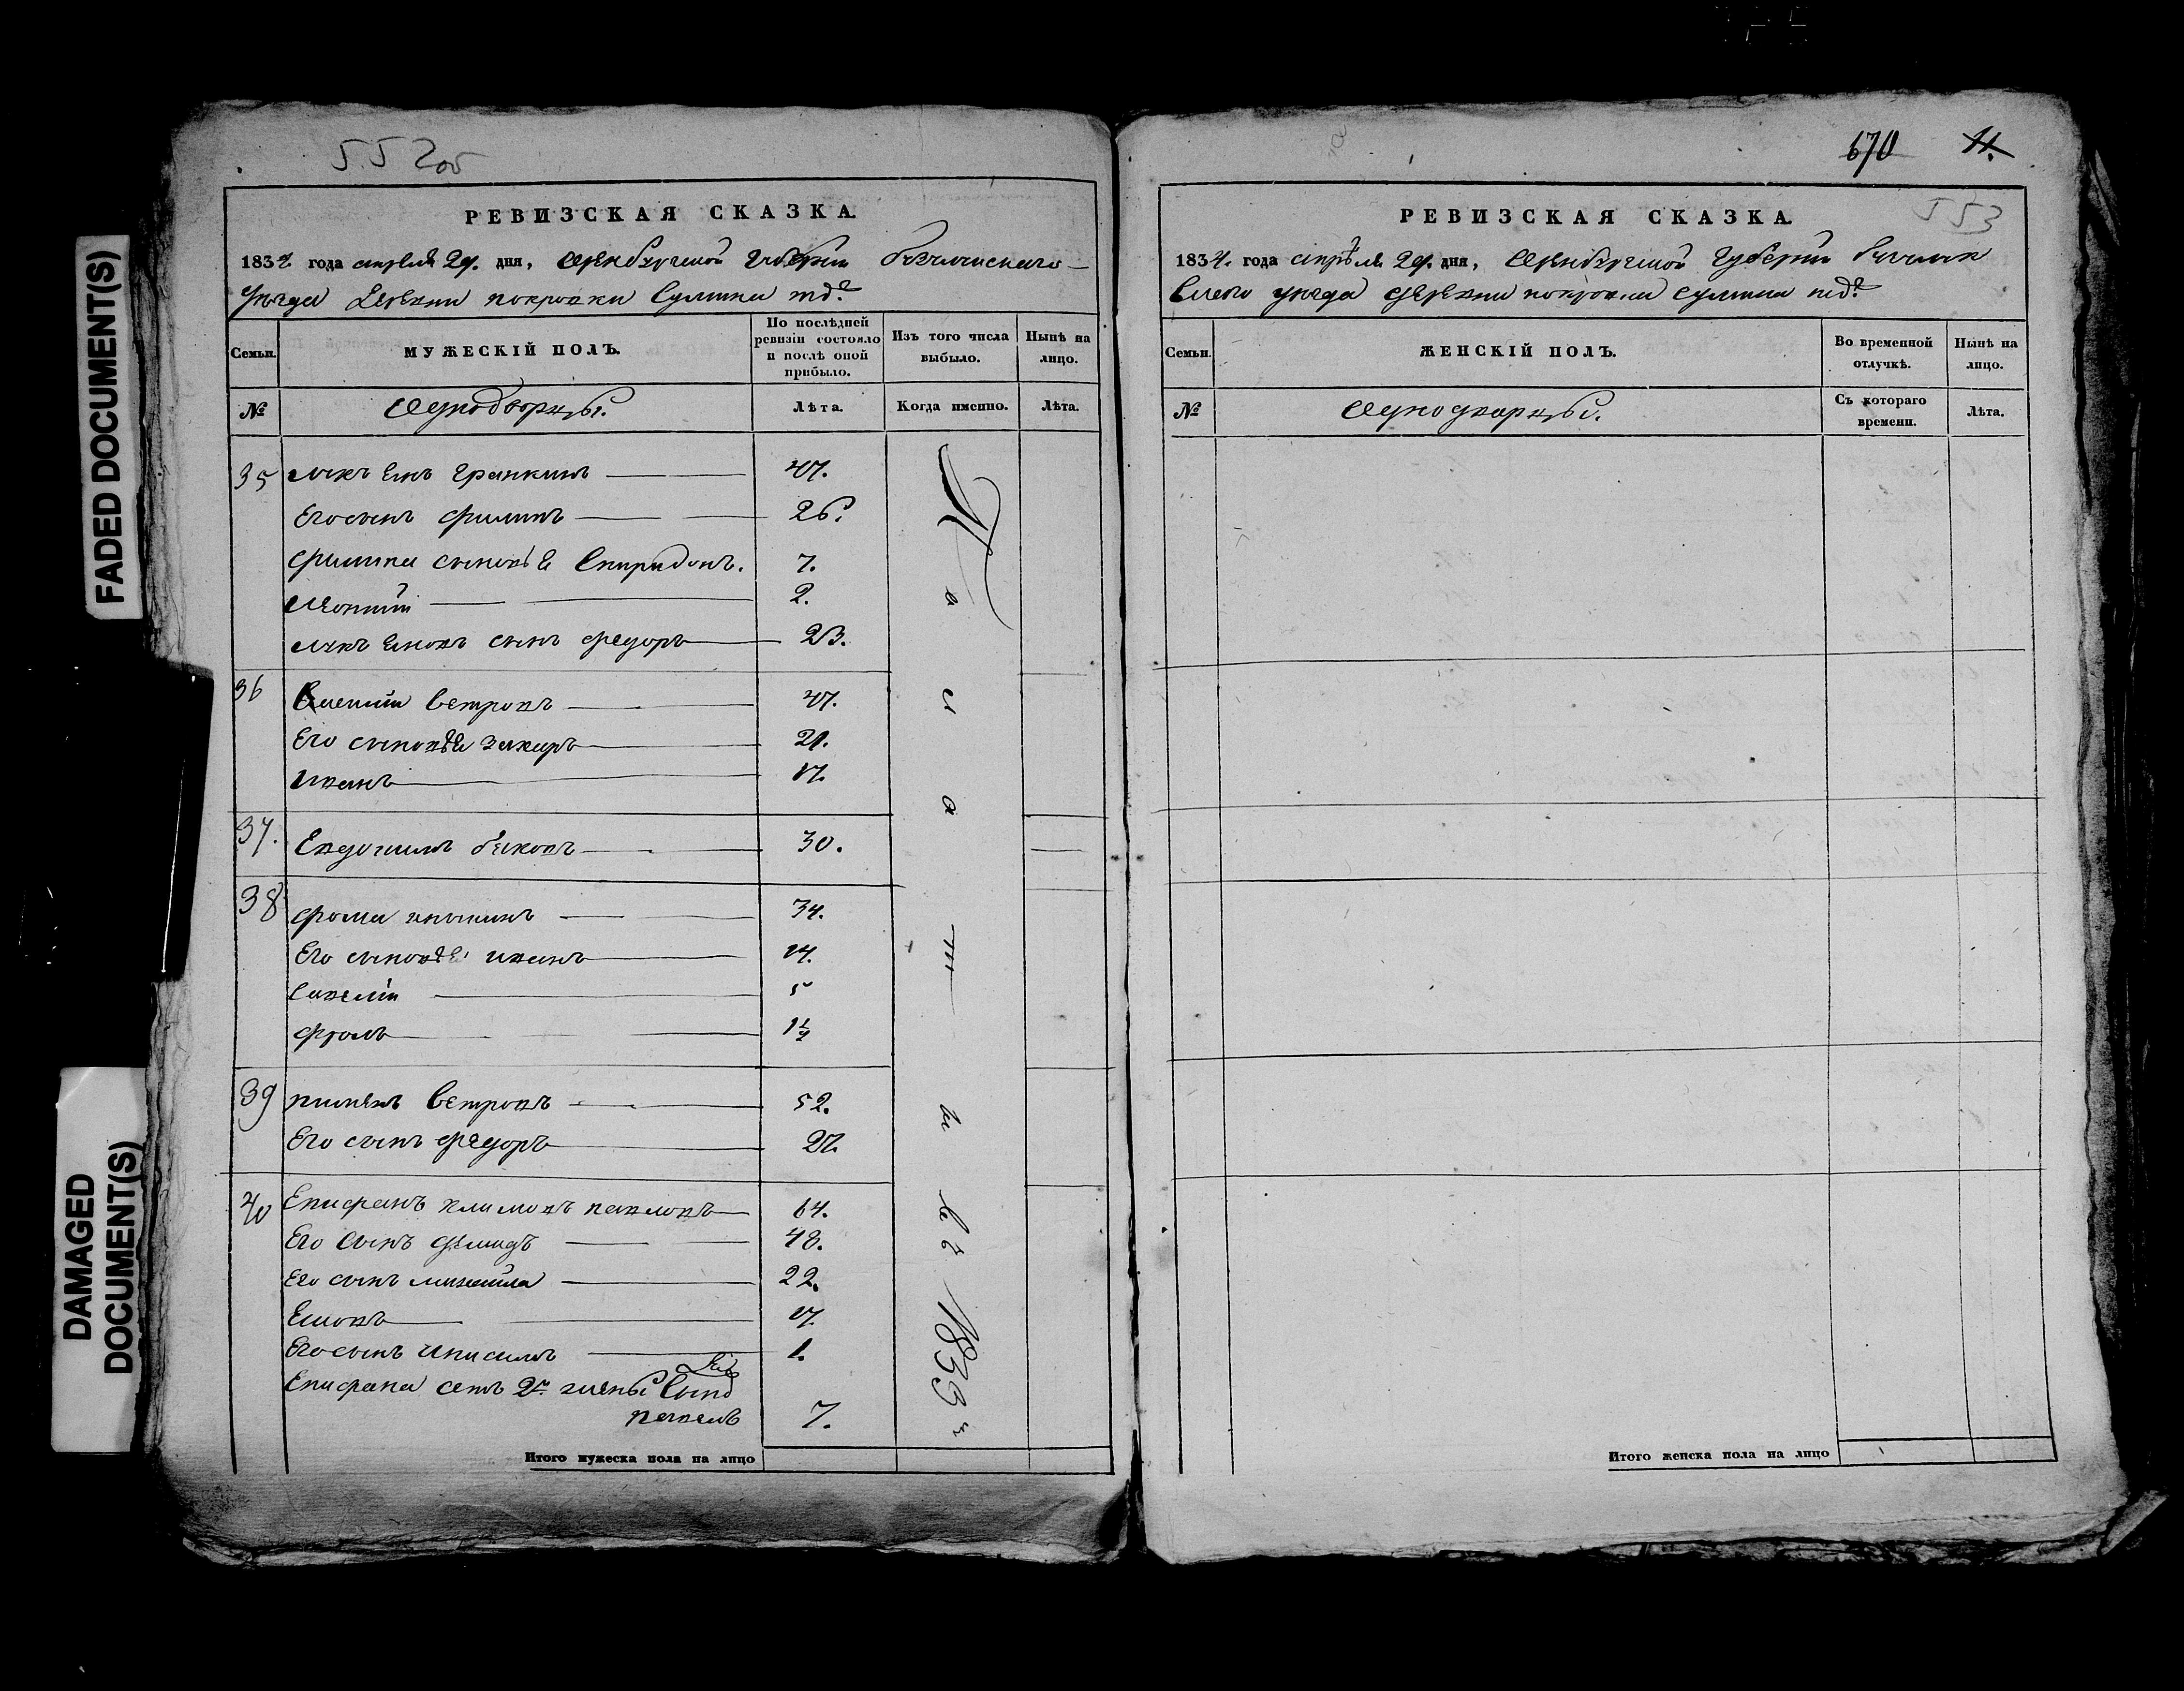 FADED DOCUMENT(S)
DAMAGED
DOCUMENT(S)
552об
РЕВИЗСКАЯ СКАЗКА.
1834 года апреля 29. дня, Оренбургской Губернии Бузулукскаго
Уезда Деревни покровки Сулмина тож
Семьи.
МУЖЕСКІЙ ПОЛЪ.
По послѣдней ревизіи состояло и послѣ оной прибыло.
Изъ того числа выбыло.
Нынѣ на лицо.
№
Однодворцы.
Лѣта.
Когда именно.
Лѣта.
35 Гранкинъ 47.
Его сынъ филипъ 26.
филипа сыновья Спиридонъ. 7.
Леонтий 2.
сынъ федоръ 23.
36 Ветровъ 47.
Его сыновья захаръ 21.
Иванъ 17.
37. Евдокимъ быковъ 30.
38 фома 34.
Его сыновья иванъ 14.
Савелии 5
фролъ 1½
39 пименъ Ветровъ 52.
Его сынъ федоръ 27.
40 Епифанъ климовъ павловъ 64.
Его Сынъ демидъ 48.
Его сынъ михаила 22.
17.
Его сынъ 1.
Епифана 2й жены Сынъ
павелъ 7.
1833
Итого мужеска пола на лицо
670 11.
553
РЕВИЗСКАЯ СКАЗКА.
1834. года апреля 29. дня, Оренбургской Губернии бузулук
Скаго уезда деревни покровки сулмина тож
Семьи.
ЖЕНСКІЙ ПОЛЪ.
Во временной отлучкѣ.
Нынѣ на лицо.
№
Однодворцы.
Съ котораго времени.
Лѣта.
Итого женска пола на лицо